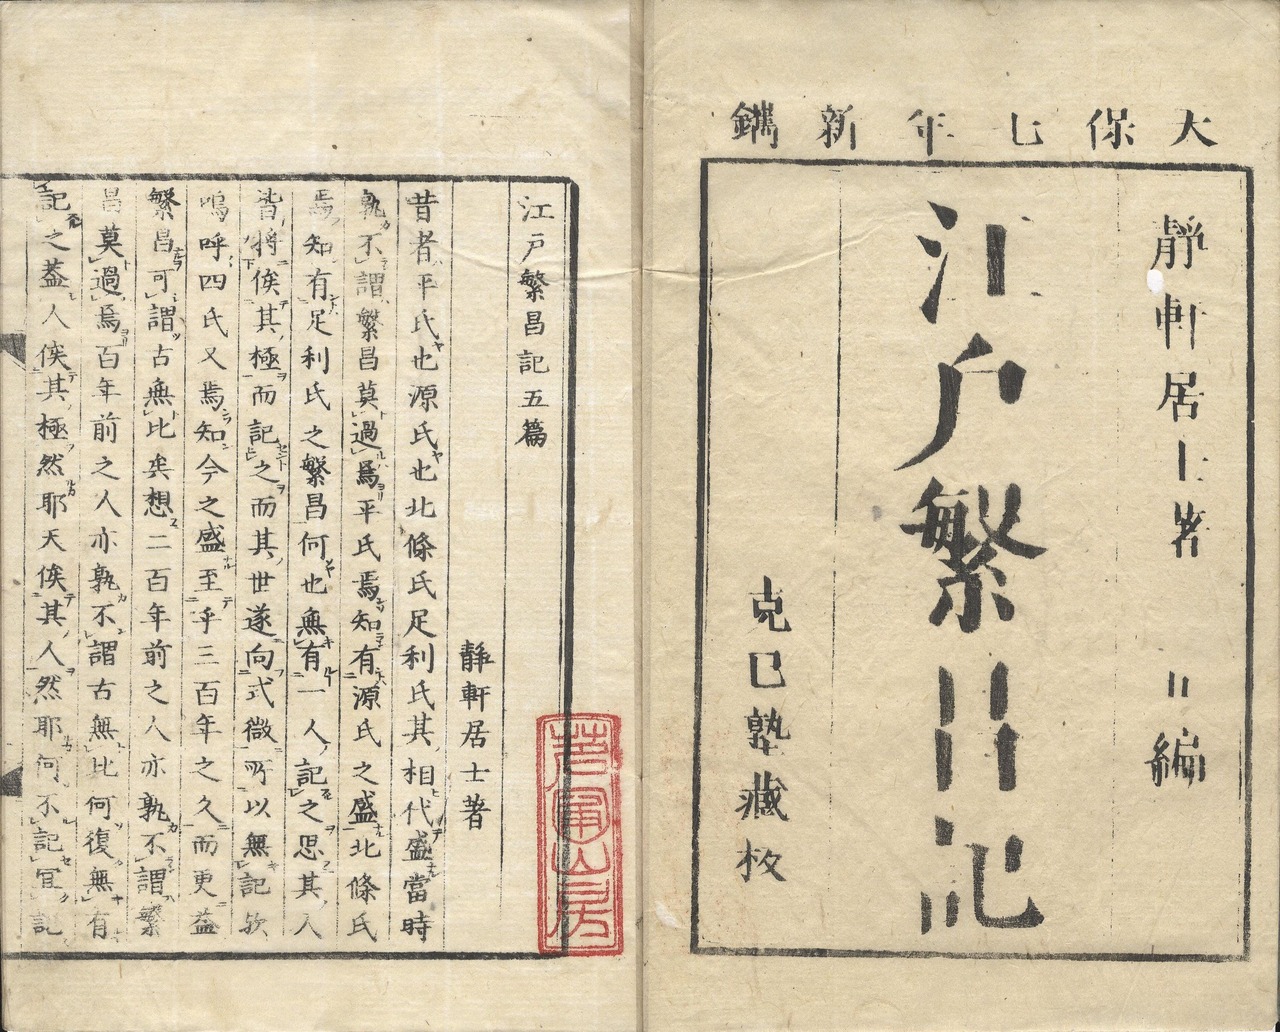 大保七年新鐫
靜軒居士著 五編
江戸繁昌記
克己塾藏板
江戸繁昌記五篇
靜軒居士著
昔者平氏也源氏也北條氏足利氏其相代盛當時
孰不謂繁昌莫過焉平氏焉知有源氏之盛北條氏
焉知有足利氏之繁昌何也無有一人記之思其人
皆將俟其極而記之而其世遂向式微所以無記歟
嗚呼四氏又焉知今之盛至乎三百年之久而更益
繁昌可謂古無比矣想二百年前之人亦孰不謂繁
昌莫過焉百年前之人亦孰不謂古無比何復無有
記之蓋人俟其極然耶天俟其人然耶何不記宜記